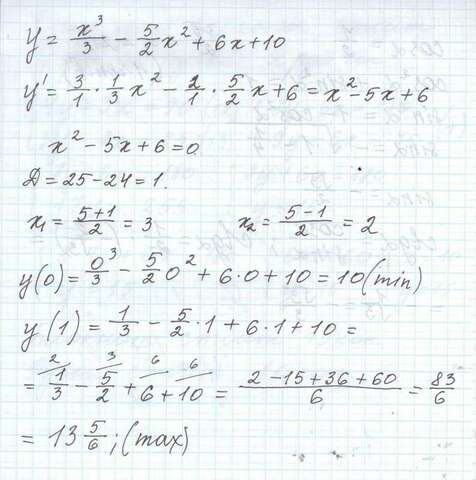 y = x³/3 − 5/2 x² + 6x + 10
y' = 3/1 · 1/3 x² − 2/1 · 5/2 x + 6 = x² − 5x + 6
x² − 5x + 6 = 0
Д = 25 − 24 = 1.
x₁ = (5+1)/2 = 3 x₂ = (5−1)/2 = 2
y(0) = 0³/3 − 5/2 0² + 6·0 + 10 = 10 (min)
y(1) = 1/3 − 5/2 · 1 + 6·1 + 10 =
2 3 6 6
= 1/3 − 5/2 + 6 + 10 = (2 − 15 + 36 + 60)/6 = 83/6
= 13 5/6; (max)